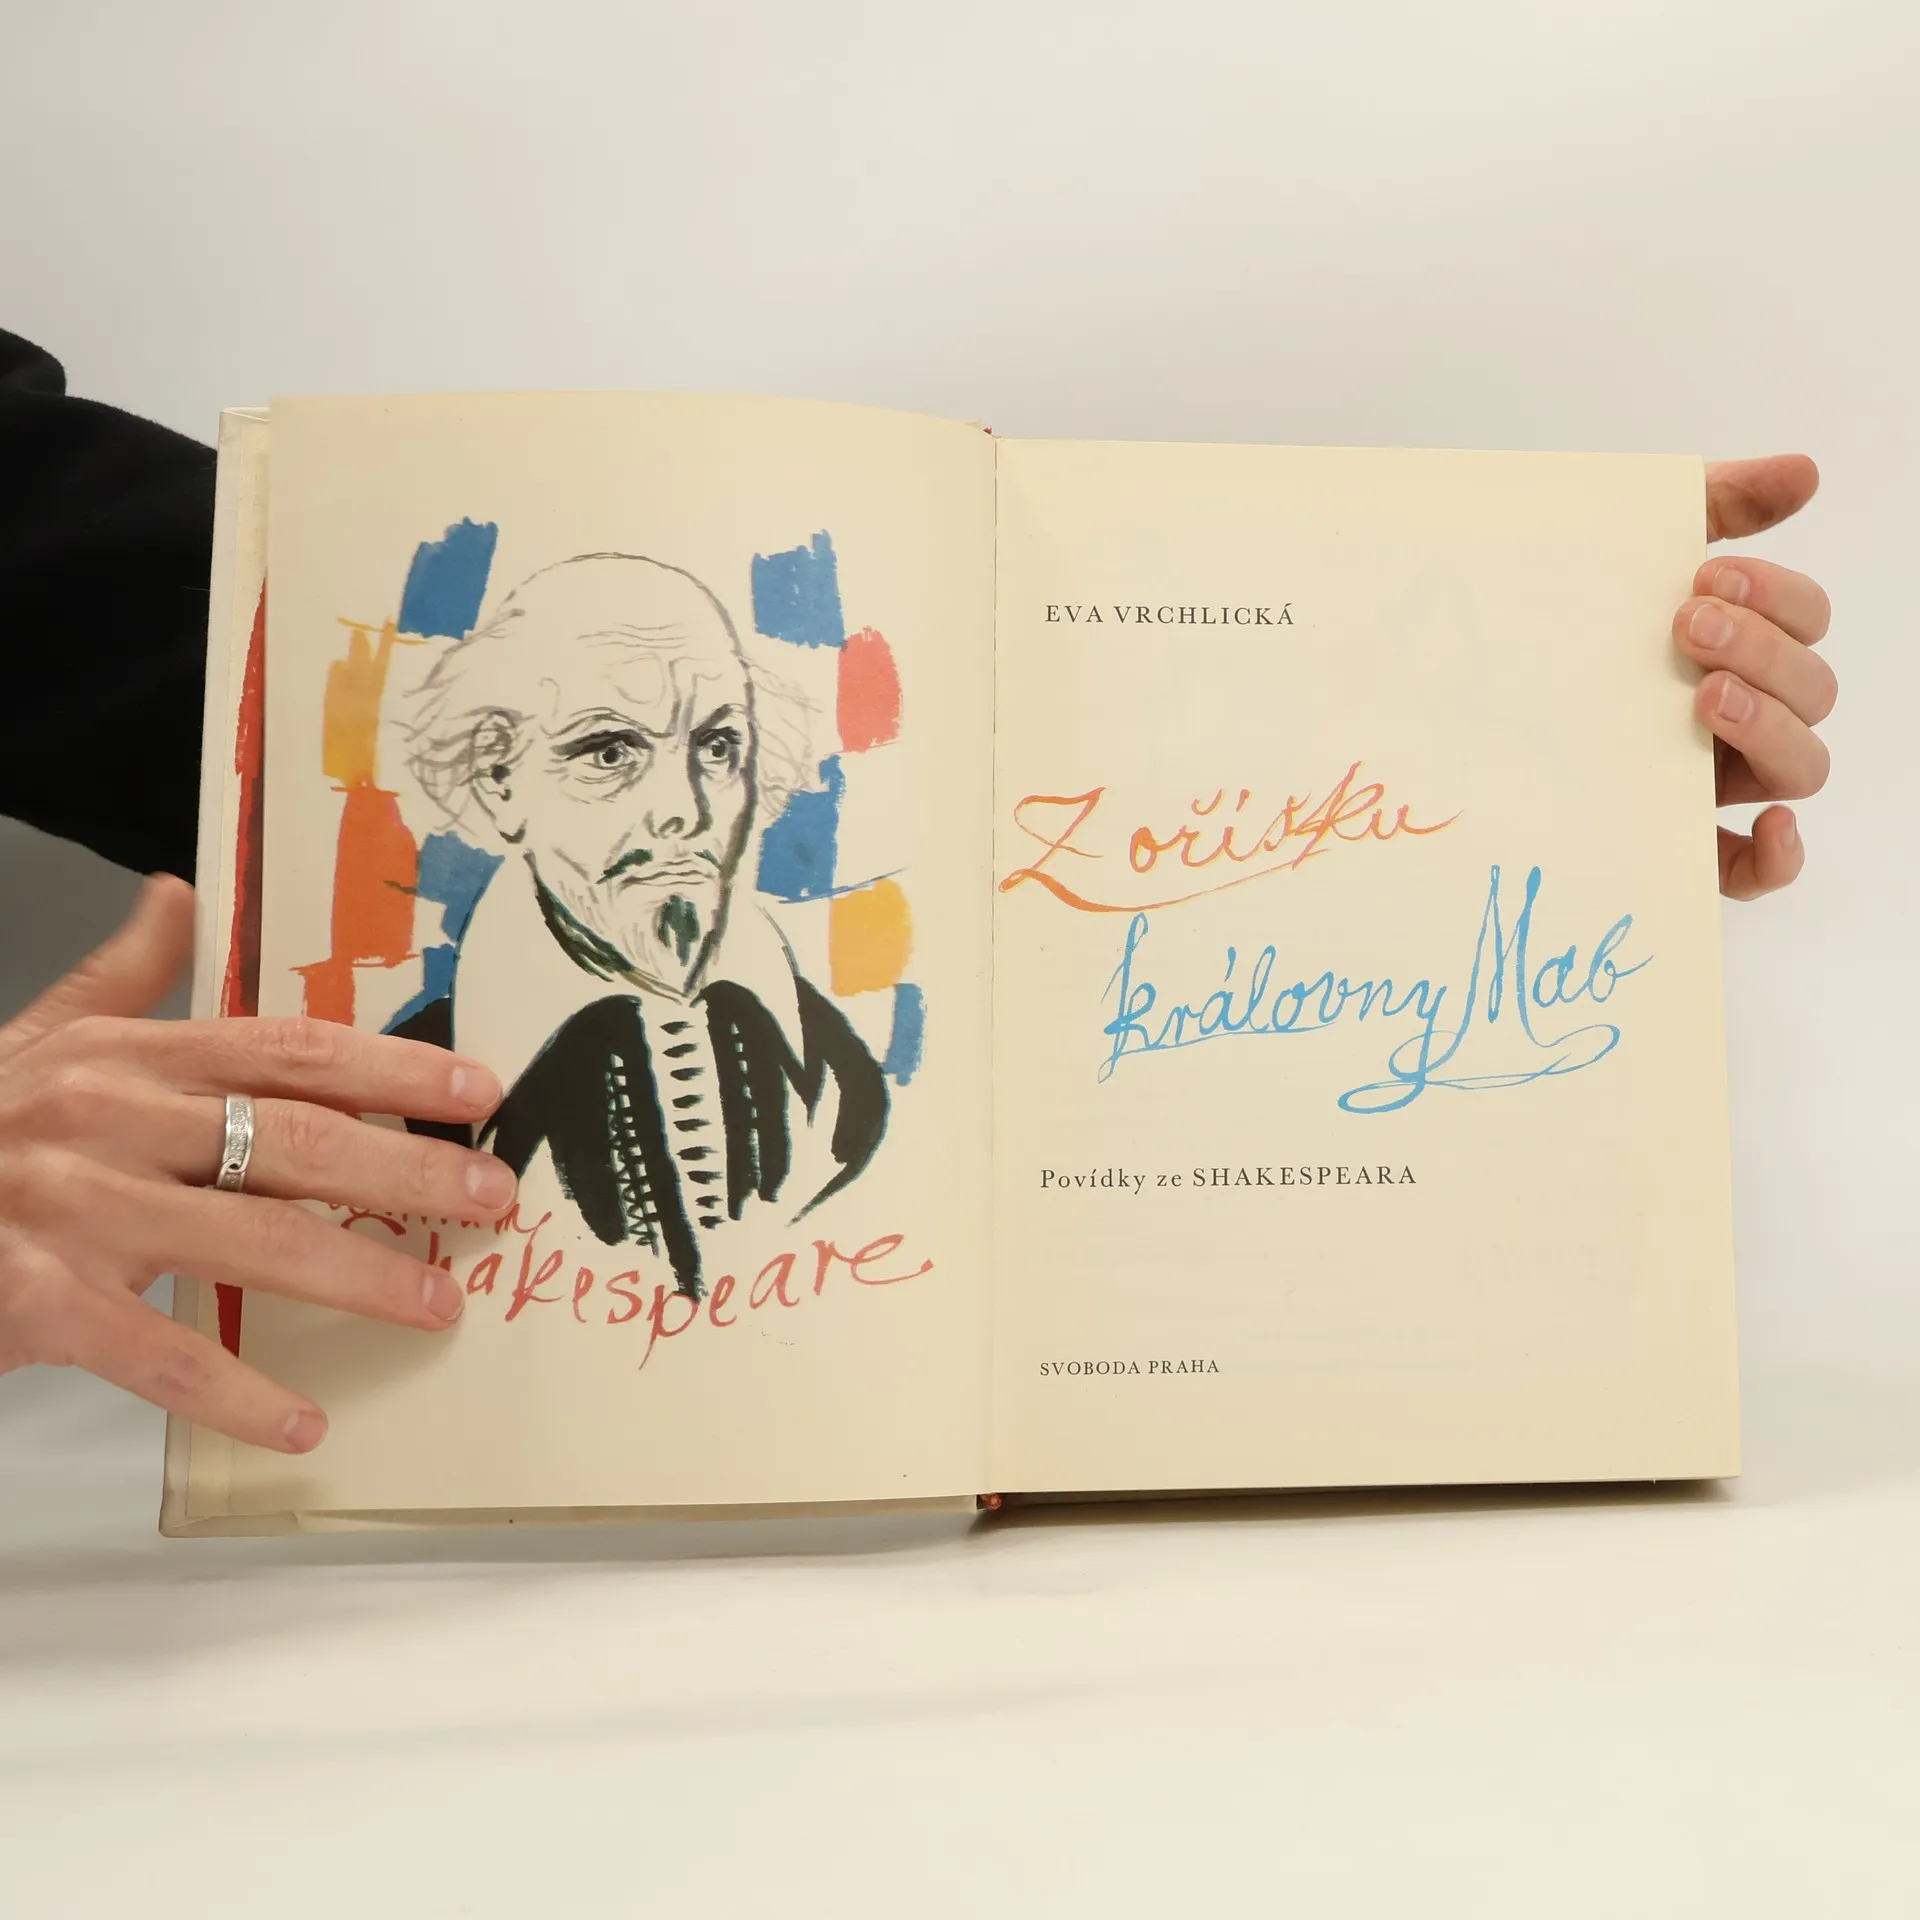 William
Shakespeare
EVA VRCHLICKÁ
Z oříšku
královny Mab
Povídky ze SHAKESPEARA
SVOBODA PRAHA